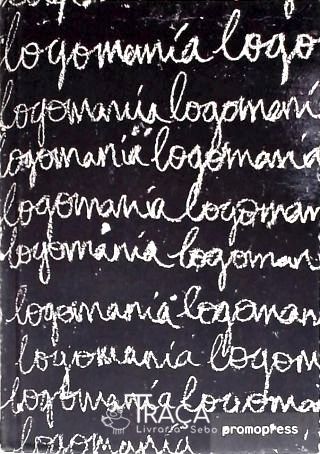 logomanía logo
logomanía logomaní
logomanía logomanía
logomanía logoman
logomanía logoman
logomanía logoman
logomanía logom
logomanía logoma
TRAÇA
Livraria e Sebo
promopress
logomanía